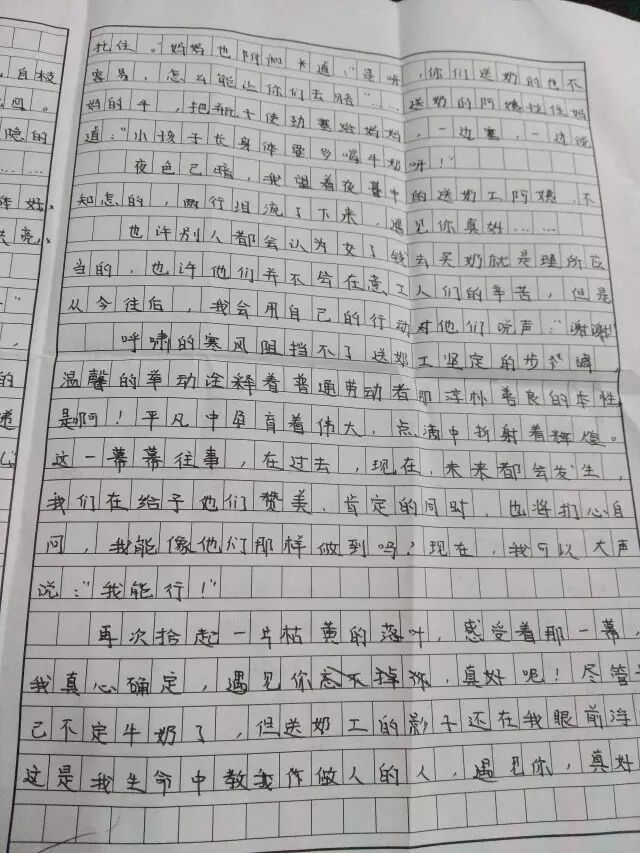 自枝
隐的
”
的
递
托住。”妈妈也附和道:“是呀,你们送奶的也不
容易,怎么能让你们去赔”……送奶的阿姨拉住妈
妈的手,把瓶子使劲塞给妈妈,一边塞,一边说
道:“小孩子长身体要多喝牛奶呀!”
夜色已暗,我望着夜暮中的送奶工阿姨,不
知怎的,两行泪流了下来,遇见你真好……
也许别人都会认为交了钱去买奶就是理所应
当的,也许他们并不曾在意工人们的辛苦,但是
从今往后,我会用自己的行动对他们说声:“谢谢!
呼啸的寒风阻挡不了送奶工坚定的步
温馨的举动诠释着普通劳动者那淳朴善良的本性
是啊!平凡中孕育着伟大,点滴中折射着辉煌。
这一幕幕往事,在过去,现在,未来都会发生,
我们在给予他们赞美、肯定的同时,也将扪心自
问,我能像他们那样做到吗?现在,我可以大声
说:“我能行!”
再次拾起一片枯黄的落叶,感受着那一幕,
我真心确定,遇见你 真好呢!尽管
己不定牛奶了,但送奶工的影子还在我眼前浮
这是我生命中教我作做人的人,遇见你,真好